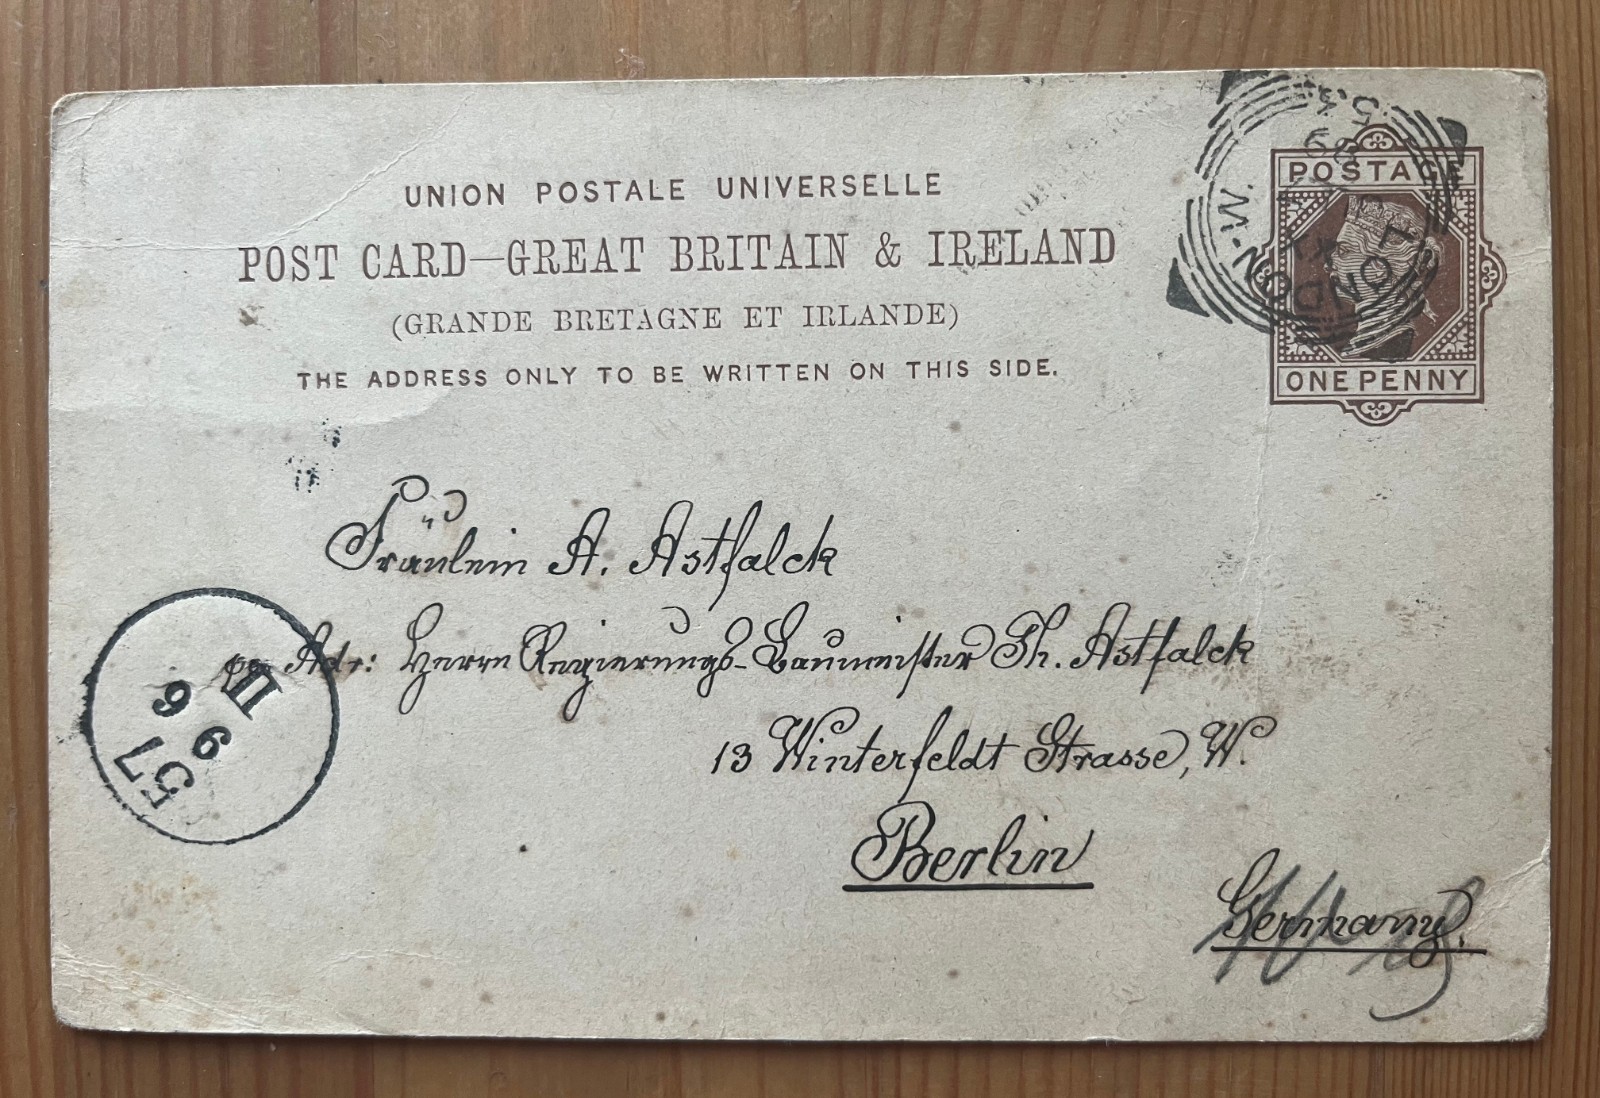 UNION POSTALE UNIVERSELLE
POST CARD—GREAT BRITAIN & IRELAND
(GRANDE BRETAGNE ET IRLANDE)
THE ADDRESS ONLY TO BE WRITTEN ON THIS SIDE.
POSTAGE
ONE PENNY
LONDON·W.
Fräulein A. Astfalck
Adr: Herrn Regierungs-Baumeister Th. Astfalck
13 Winterfeldt Strasse, W.
Berlin
Germany.
57
9
6
II